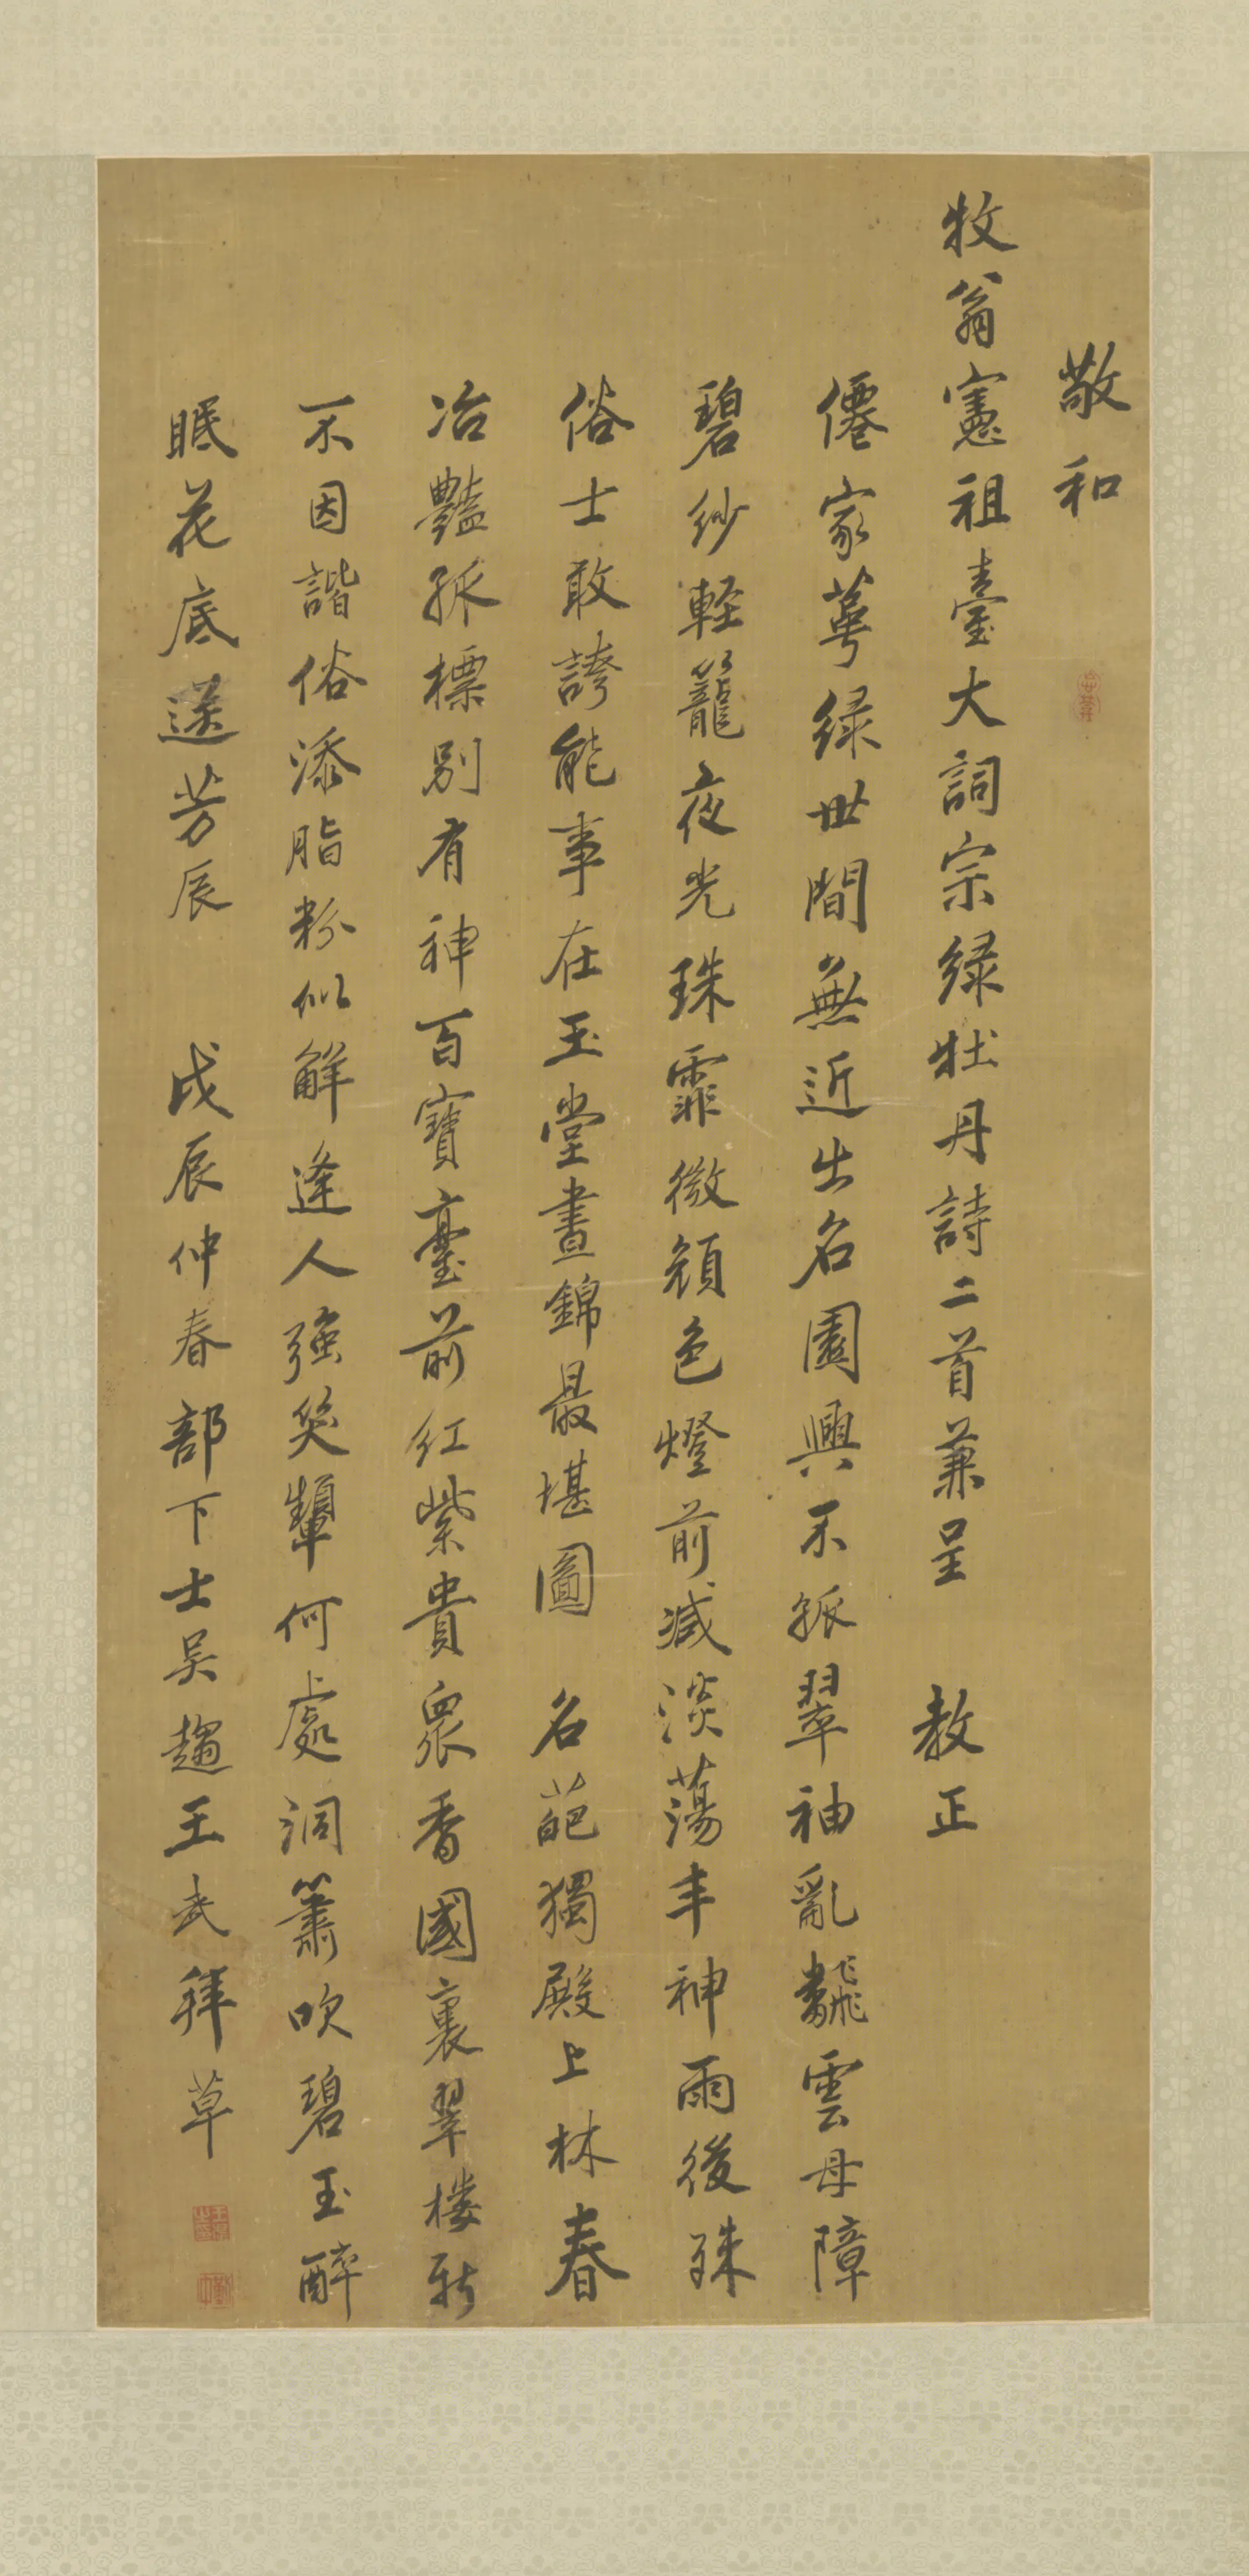 敬和
牧翁憲祖臺大詞宗綠牡丹詩二首兼呈 教正
僊家萼綠世間無近出名園興不孤翠袖亂飜雲母障
碧紗輕籠夜光珠霏微顏色燈前減淡蕩丰神雨後殊
俗士敢誇能事在玉堂晝錦最堪圖 名葩獨殿上林春
冶豔孤標別有神百寶臺前紅紫貴眾香國裏翠樓新
不因諧俗添脂粉似解逢人強笑顰何處洞簫吹碧玉醉
眠花底送芳辰 戊辰仲春部下士吳趨王武拜草